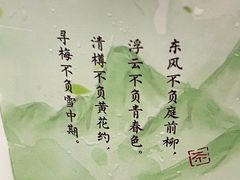 东风不负庭前柳，
浮云不负青春色。
清樽不负黄花约，
寻梅不负雪中期。
茶